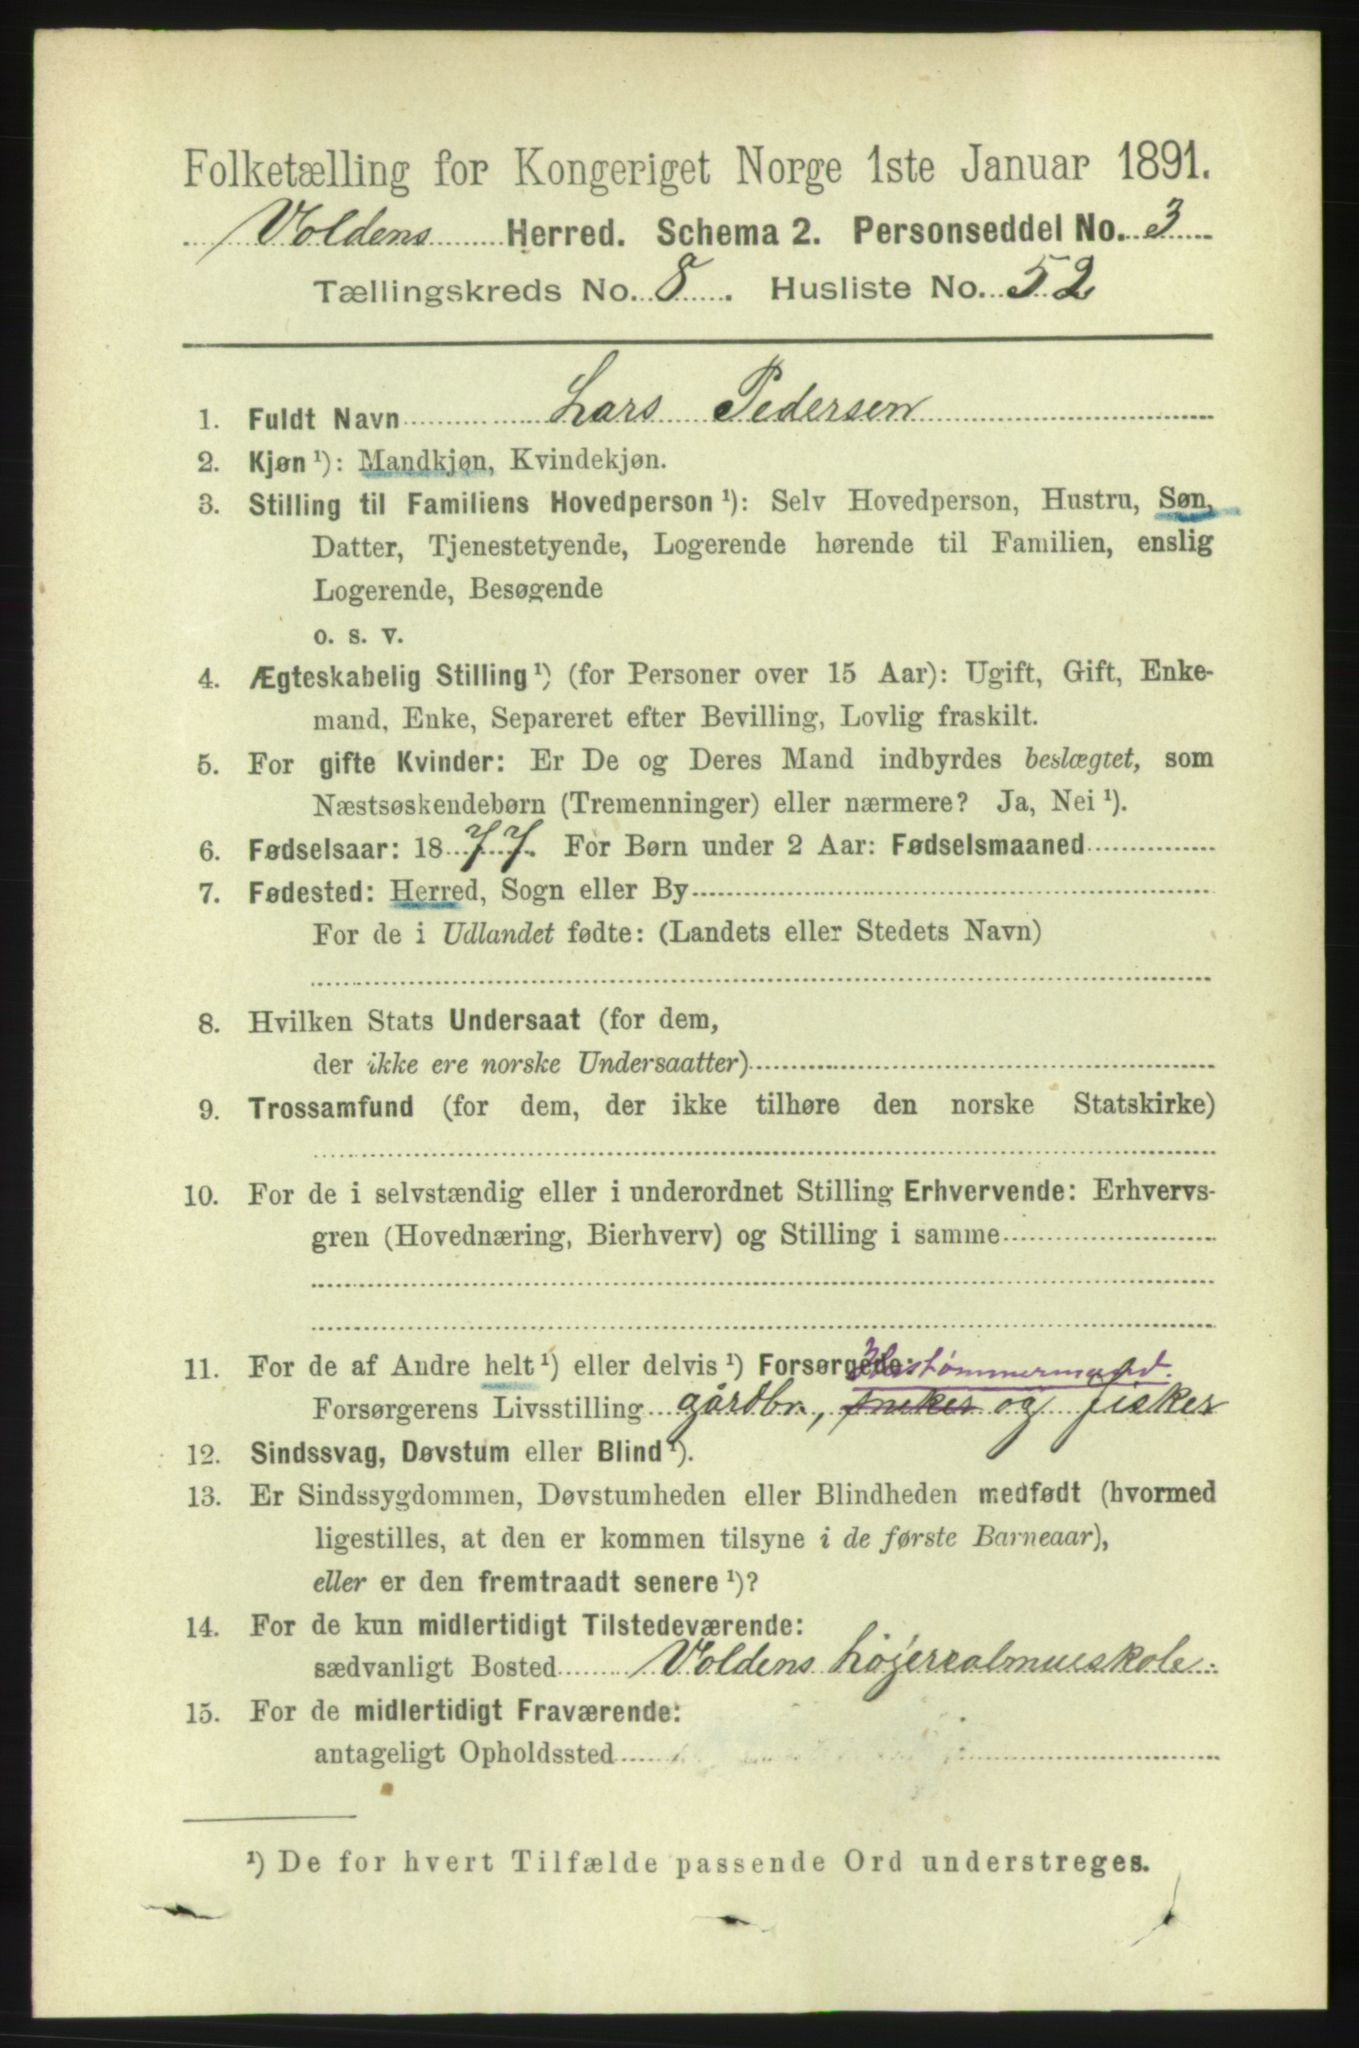 Folketælling for Kongeriget Norge 1ste Januar 1891.
Voldens Herred. Schema 2. Personseddel No. 3
Tællingskreds No. 8. Husliste No. 52
1. Fuldt Navn Lars Pedersen
2. Kjøn ¹): Mandkjøn, Kvindekjøn.
3. Stilling til Familiens Hovedperson ¹): Selv Hovedperson, Hustru, Søn,
Datter, Tjenestetyende, Logerende hørende til Familien, enslig
Logerende, Besøgende
o. s. v.
4. Ægteskabelig Stilling ¹) (for Personer over 15 Aar): Ugift, Gift, Enke-
mand, Enke, Separeret efter Bevilling, Lovlig fraskilt.
5. For gifte Kvinder: Er De og Deres Mand indbyrdes beslægtet, som
Næstsøskendebørn (Tremenninger) eller nærmere? Ja, Nei ¹).
6. Fødselsaar: 1877. For Børn under 2 Aar: Fødselsmaaned
7. Fødested: Herred, Sogn eller By
For de i Udlandet fødte: (Landets eller Stedets Navn)
8. Hvilken Stats Undersaat (for dem,
der ikke ere norske Undersaatter)
9. Trossamfund (for dem, der ikke tilhøre den norske Statskirke)
10. For de i selvstændig eller i underordnet Stilling Erhvervende: Erhvervs-
gren (Hovednæring, Bierhverv) og Stilling i samme
11. For de af Andre helt ¹) eller delvis ¹) Forsørgede:
Forsørgerens Livsstilling gårdbr., sneker og fisker
12. Sindssvag, Døvstum eller Blind ¹).
13. Er Sindssygdommen, Døvstumheden eller Blindheden medfødt (hvormed
ligestilles, at den er kommen tilsyne i de første Barneaar),
eller er den fremtraadt senere ¹)?
14. For de kun midlertidigt Tilstedeværende:
sædvanligt Bosted Voldens højerealmueskole.
15. For de midlertidigt Fraværende:
antageligt Opholdssted
¹) De for hvert Tilfælde passende Ord understreges.